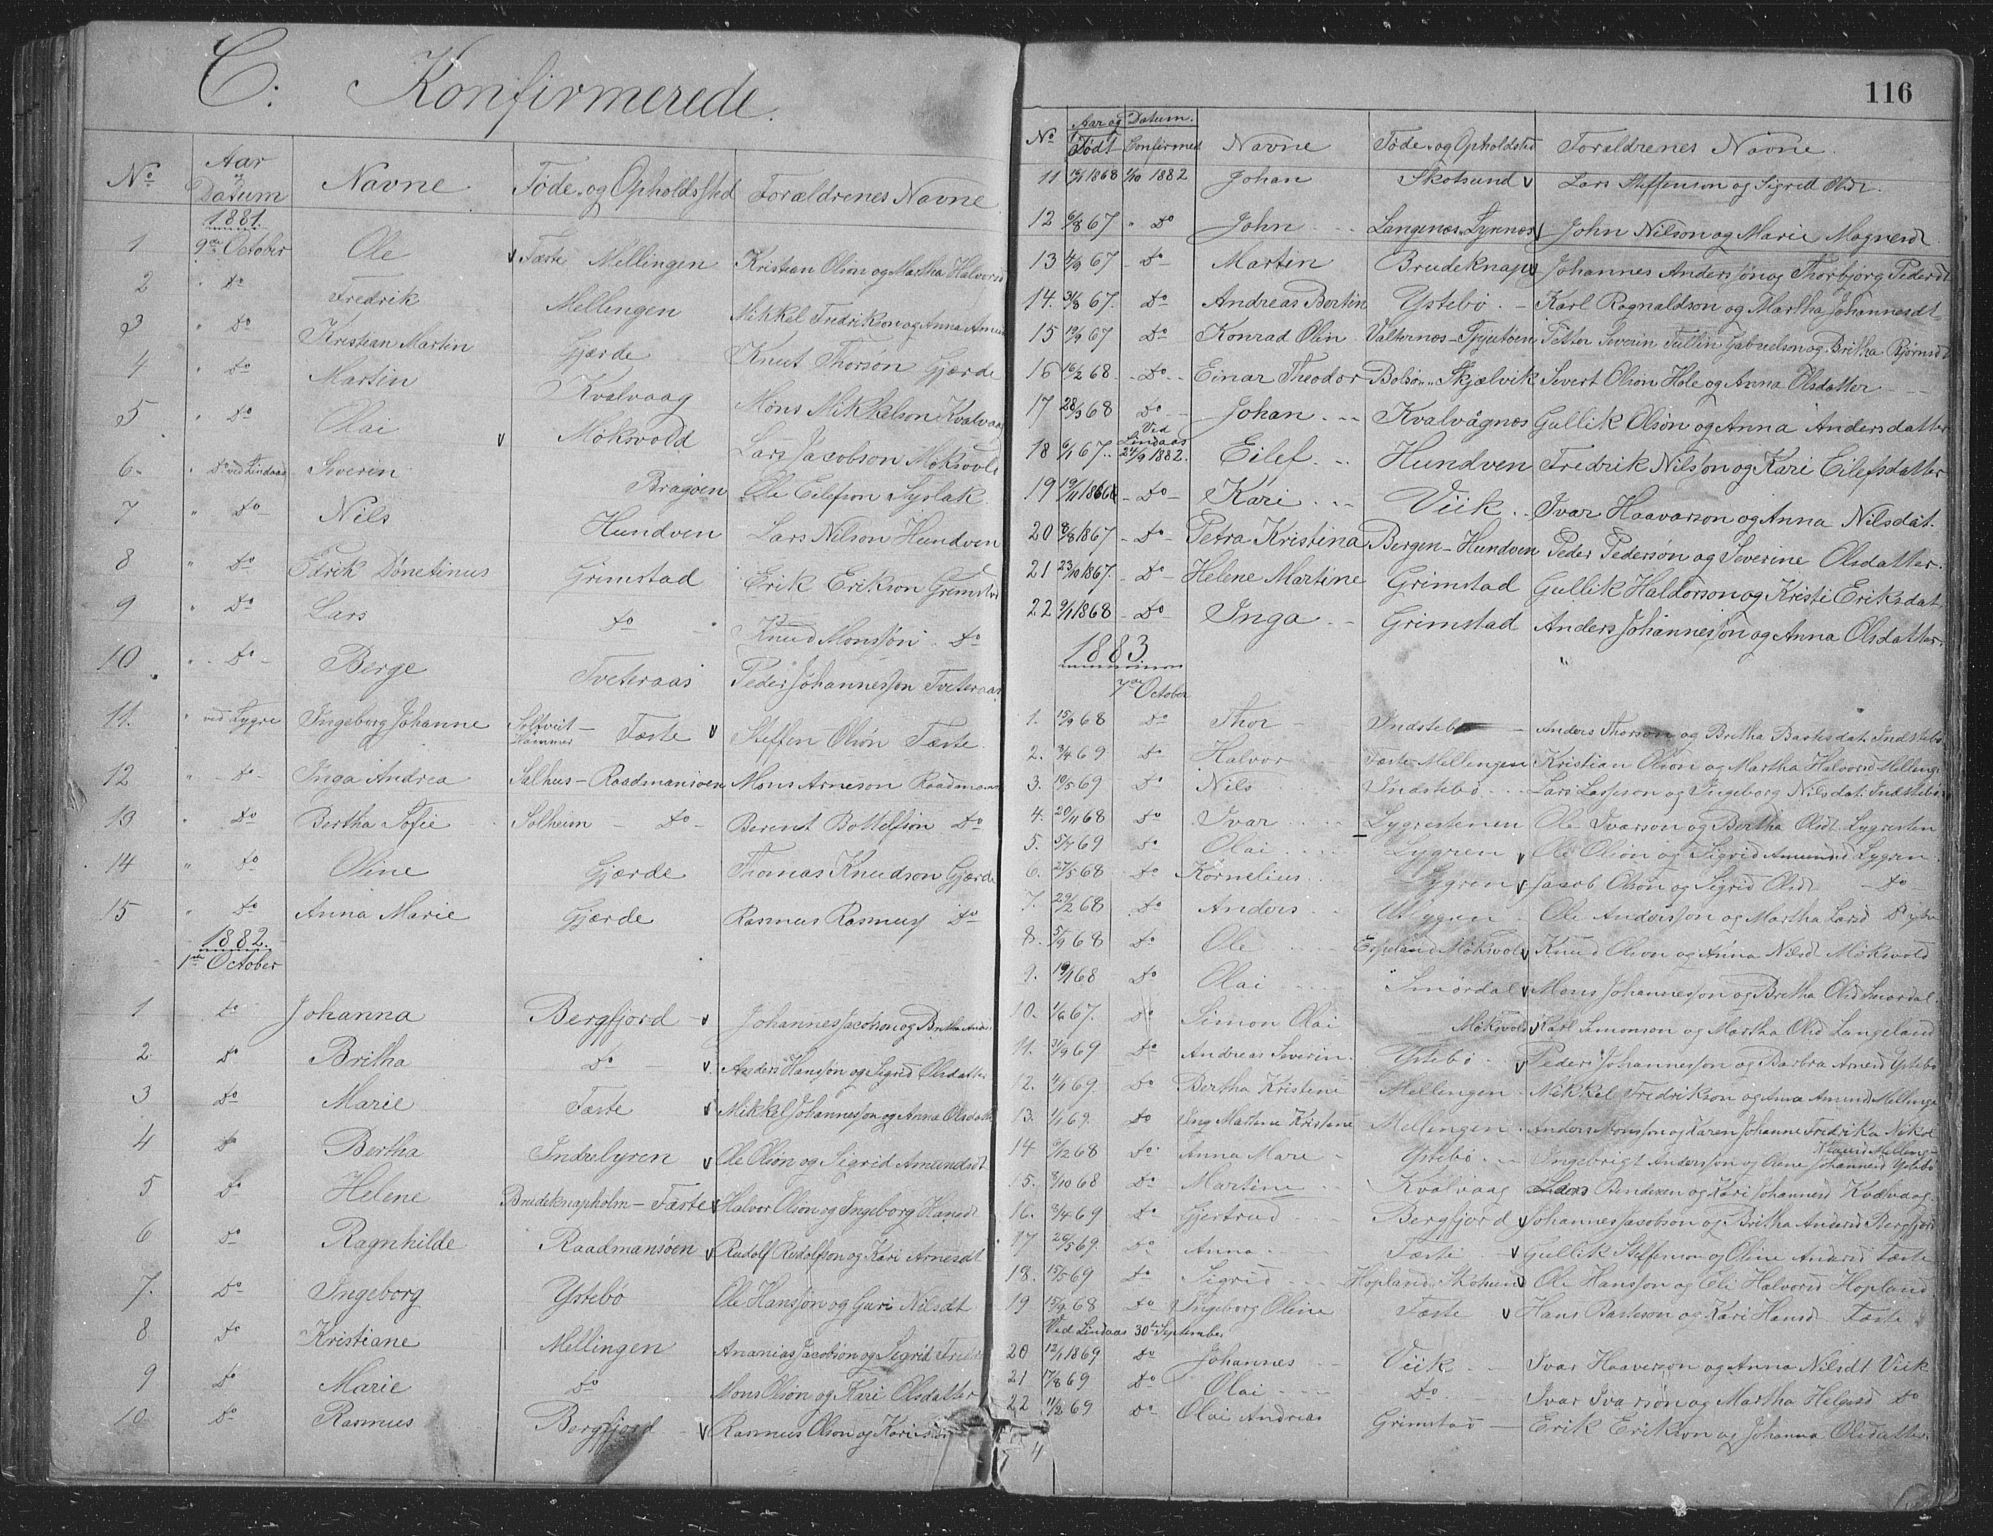 C: Konfirmerede.
No Aar og Datum Navne Føde og Opholdsted Forældrenes Navne
1881.
1 9de October Ole Fæste Mellingen Kristian Olson og Martha Halvorsd
2 " Do Fredrik Mellingen Mikkel Fredrikson og Anna Amun
3 " Do Kristian Martin Gjærde Knut Thorson Gjærde
4 " Do Martin Kvalvaag Møns Mikkelson Kvalvaag
5 " Do Olai Møksvold Lars Jacobson Møksvold
6 " Do ved Lindaas Severin Bragøen Ole Eilefson Syslak
7 " Do Nils Hundven Lars Nilson Hundven
8 " Do Edrik Dønetinus Grimstad Erik Erikson Grimstad
9 " Do Lars Do Knud Monsson Do
10 " Do Berge Tveteraas Peder Johannesson Tveteraas
11. " ved Lygre Ingeborg Johanne Hammer Fæste Steffen Olsøn Fæste
12 " Do Inga Andrea Salhus - Raadmansøen Mons Arneson Raadmans
13 " Do Bertha Sofie Solheim - Do - Berent Bottolfson Do
14 " Do Oline Gjærde Thomas Knudson Gjærde
15 " Do Anna Marie Gjærde Rasmus Rasmuss Do
1882.
1ste October
1 Do Johanna Bergfjord Johannes Jacobson og Britha And
2 Do Britha Do Anders Hansson og Sigrid Olsdatter
3 Do Marie Fæste Mikkel Johannesson og Anna Olsdatt
4 Do Bertha Indrelyren Ole Olson og Sigrid Amundsdt
5 Do Helene Brudeknapholm - Fæste Halvor Olson og Ingeborg Hansdt
6 Do Ragnhilde Raadmansøen Rudolf Rudolfson og Kari Arnesdt
7. Do Ingeborg Ystebø Ole Hansson og Guri Nilsdt
8 Do Kristiane Mellingen Ananias Jacobson og Sigrid Fred
9 Do Marie Do Mons Olsøn og Kari Olsdatter
10 Do Rasmus Bergfjord Rasmus Olson og Kari
116
No Aar og Datum. Født Confirmed Navne Føde og Opholdsted Forældrenes Navne
11 1868 1/10 1882 Johan Skotsund Lars Steffenson og Sigrid Olsdt.
12 6/8 67 " Do John Langenæs Lyrnnæs John Nilson og Marie Magnesdt
13 4/9 67 Do Martin Brudeknap Johannes Andersson og Thorbjørg Pedersdt
14. 31/8 67. Do Andreas Bertin Ystebø Karl Ragnaldson og Martha Johannesdt
15 19/9 67 Do Konrad Olin Valternæs - Spjutøen Petter Severin Tullin Gabrielson og Britha Bjørnsdt
16 16/2 68 Do Einar Theodor Bolsø - Skjælvik Sivert Olson Hole og Anna Olsdatter
17 28/3 68 Do Johan Kvalvågnes Gullik Olsøn og Anna Andersdatter
Ved Lindaas
18 6/1 67. 24/9 1882. Eilef Hundven Fredrik Nilsson og Kari Eilefsdatter
19 19/11 1866 Do Kari Viik Ivar Haavarson og Anna Nilsdat.
20 8/8 1867 Do Petra Kristina Bergen - Hundven Peder Pedersøn og Severine Olsdatter.
21 23/10 1867. Do Helene Martine Grimstad Gullik Haldorson og Kristi Eriksdat.
22 9/1 1868 Do Inga Grimstad Anders Johannesson og Anna Olsdatter.
1883
7de October
1. 15/9 68 Do Thor Indstebø Anders Thorson og Britha Bartsdat. Indstebø
2. 3/4 69 Do Halvor Fæste Mellingen Kristian Olson og Martha Halvorsd Melling
3. 19/5 69 Do Nils Indstebø Lars Larsson og Ingeborg Nilsdat. Indstebø
4. 20/11 68 Do Ivar Lygrestenen Ole Ivarson og Bertha Olsdt Lygresten
5. 5/7 69 Do Olai Lygren Ole Olson og Sigrid Amunsd Lygren
6. 27/5 68 Do Kornelius Lygren Jacob Olson og Sigrid Olsdt - Do
7. 29/2 68 Do Anders Utlygren Ole Andersson og Martha Larsd Do
8. 5/9 68 Do Ole Espeland Møksvold Knud Olson og Anna Nilsd Møksvold
9. 19/1 68 Do Olai Smørdal Mons Johannesson og Britha Olsd Smørdal
10. 1/6 67. Do Simon Olai Møksvold Karl Simonson og Martha Olsd Langeland
11. 31/9 69 Do Andreas Severin Ystebø Peder Johannesson og Barbra Arnesd Ystebø
12. 1/1 69 Do Bertha Kristine Mellingen Mikkel Fredrikson og Anna Amund Mellinge
13. 1/1 69. Do Ing Martine Kristine Mellingen Anders Monsson og Karen Johanne Fredrika Nikol
14 6/12 68 Do Anna Mare Ystebø Ingebrigt Andersson og Oline Johannesd Ystebø
15. 3/10 68 Do Martine Kvalvaag Anders Bendixen og Kari Johannesd Kvalvaag
16. 3/4 69 Do Gjertrud Bergfjord Johannes Jacobson og Britha Andersd Bergfjord
17 26/5 69. Do Anna Fæste Gullik Steffenson og Oline Andersd Fæste
18. 15/5 69 Do Sigrid Hopland Ole Hansson og Eli Halvorsd Hopland
19 15/9 68 Do Ingeborg Oline Fæste Hans Basteson og Kari Hansd Fæste
Ved Lindaas 30te September
20 12/1 1869 Do Johannes Viik Ivar Haaverson og Anna Nilsdt Viik
21 17/8 69 Do Olai Do Ivar Ivarson og Martha Helgesd Do
22 1/2 69 Do Olai Andreas Grimstad Erik Erikson og Johanna Olsdatter